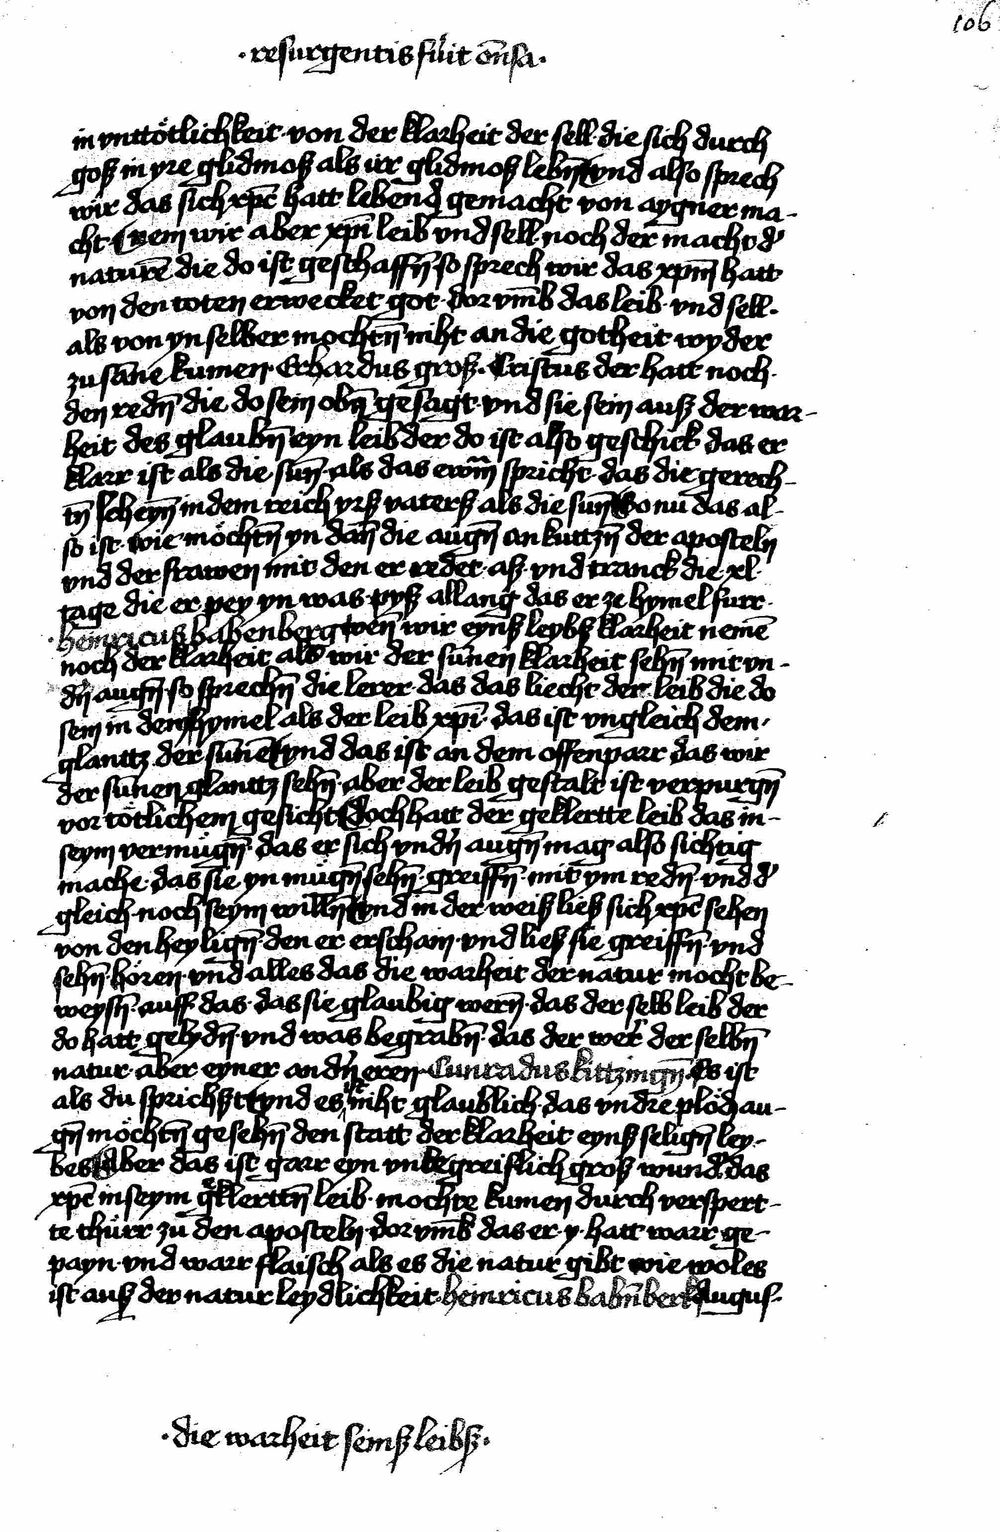 106
·resurgentis fuit ōnsa·
in vnttötlichkeit·von der klarheit der sell·die sich durch
goß in yre glidmoß als irr glidmoß lebn̄ vnd also sprech
wir das sich xp̄c hatt lebend gemacht von aygner ma-
cht Nem wir aber xp̄i leib vnd sell noch der macht d'
naturē die do ist geschaffn̄ so sprech wir das xp̄m hatt
von den toten erwecket got·dor vm̄b das leib·vnd sell·
als von yn selber mochtn̄ niht an die gotheit wyder
zu sāne kumen·Erhardus groß·Cristus der hatt noch·
den redn̄ die do sein obn̄ gesagt·vnd sie sein auß der war-
heit des glaubn̄ eyn leib der do ist also geschick das er
klarr ist als die sun̄·als das ewm̄ spricht·das die gerech-
tn̄ scheyn̄ in dem reich yrß vaterß als die sun̄ So nu das al-
so ist·wie möchtn̄ yn dan̄ die augn̄ an kuttzn̄ der aposteln
vnd der frawen mit den er redet·aß·vnd tranck die·xl·
tage die er pey yn was·pyß allang das er ze hymel furr·
·heinricus babenberg wen̄ wir eynß leybß klarheit nemē
noch der klarheit als wir der sūnen klarheit sehn̄ mit vn-
dn̄ augn̄·so sprechn̄ die lerer·das das liecht der leib die do
sein in dem hymel als der leib xp̄i·das ist vngleich dem·
glanttz der sūnē vnd das ist an dem offenparr das wir
der sūnen glanttz sehn̄·aber der leib gestalt ist verpurgn̄
vor tötlichem gesicht Doch hatt der geklertte leib das in-
seym vermügn̄·das er sich vndn̄ augn̄ mag also sichtig
mache·das sie yn mügn̄ sehn̄·greiffn̄·mit ym redn̄·vnd d'
gleich·noch seym willn̄ vnd in der weiß ließ sich xp̄c sehen
von den heylign̄·den er erschain·vnd ließ sie greiffn̄·vnd
sehn̄·hören·vnd alles das die warheit der natur mocht be-
weysn̄·auff das·das sie glaubig wern̄·das der selb leib der
do hatt gelydn̄·vnd was begrabn̄·das der wer der selbn̄
natur·aber eyner andn̄ eren·Cunradus kittzingn̄·Es ist
als du sprichst vnd es ist niht glaublich·das vndre plöd au-
gn̄ möchtn̄ gesehn̄ den statt der klarheit eynß selign̄ ley-
bes Aber das ist garr eyn vnbegreiflich groß wund'·das
xp̄c in seym geklerttn̄ leib·mochte kumen durch verspert-
te thürr zu den aposteln·dor vm̄b das er·y·hatt warr ge-
payn·vnd warr flaisch als es die natur gibt wie wol es
ist auß der natur leydlichkeit·heinricus babn̄berk Augus·
·die warheit seinß leibß·